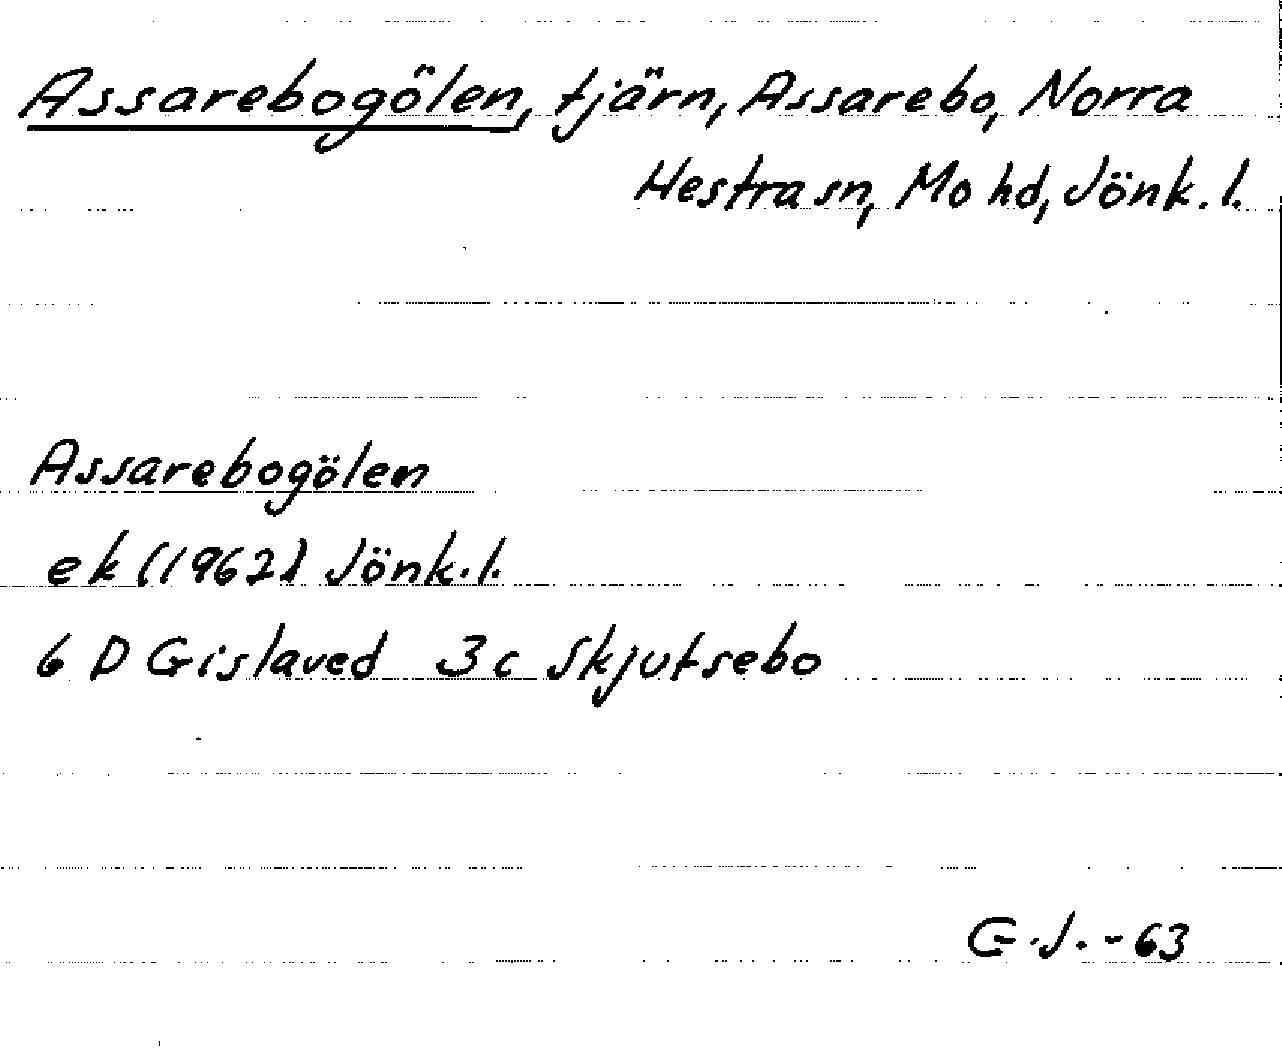 Assarebogölen, tjärn, Assarebo, Norra
Hestra sn, Mo hd, Jönk. l.
Assarebogölen
ek (1962) Jönk. l.
6 D Gislaved 3c Skjutsebo
G. J. - 63